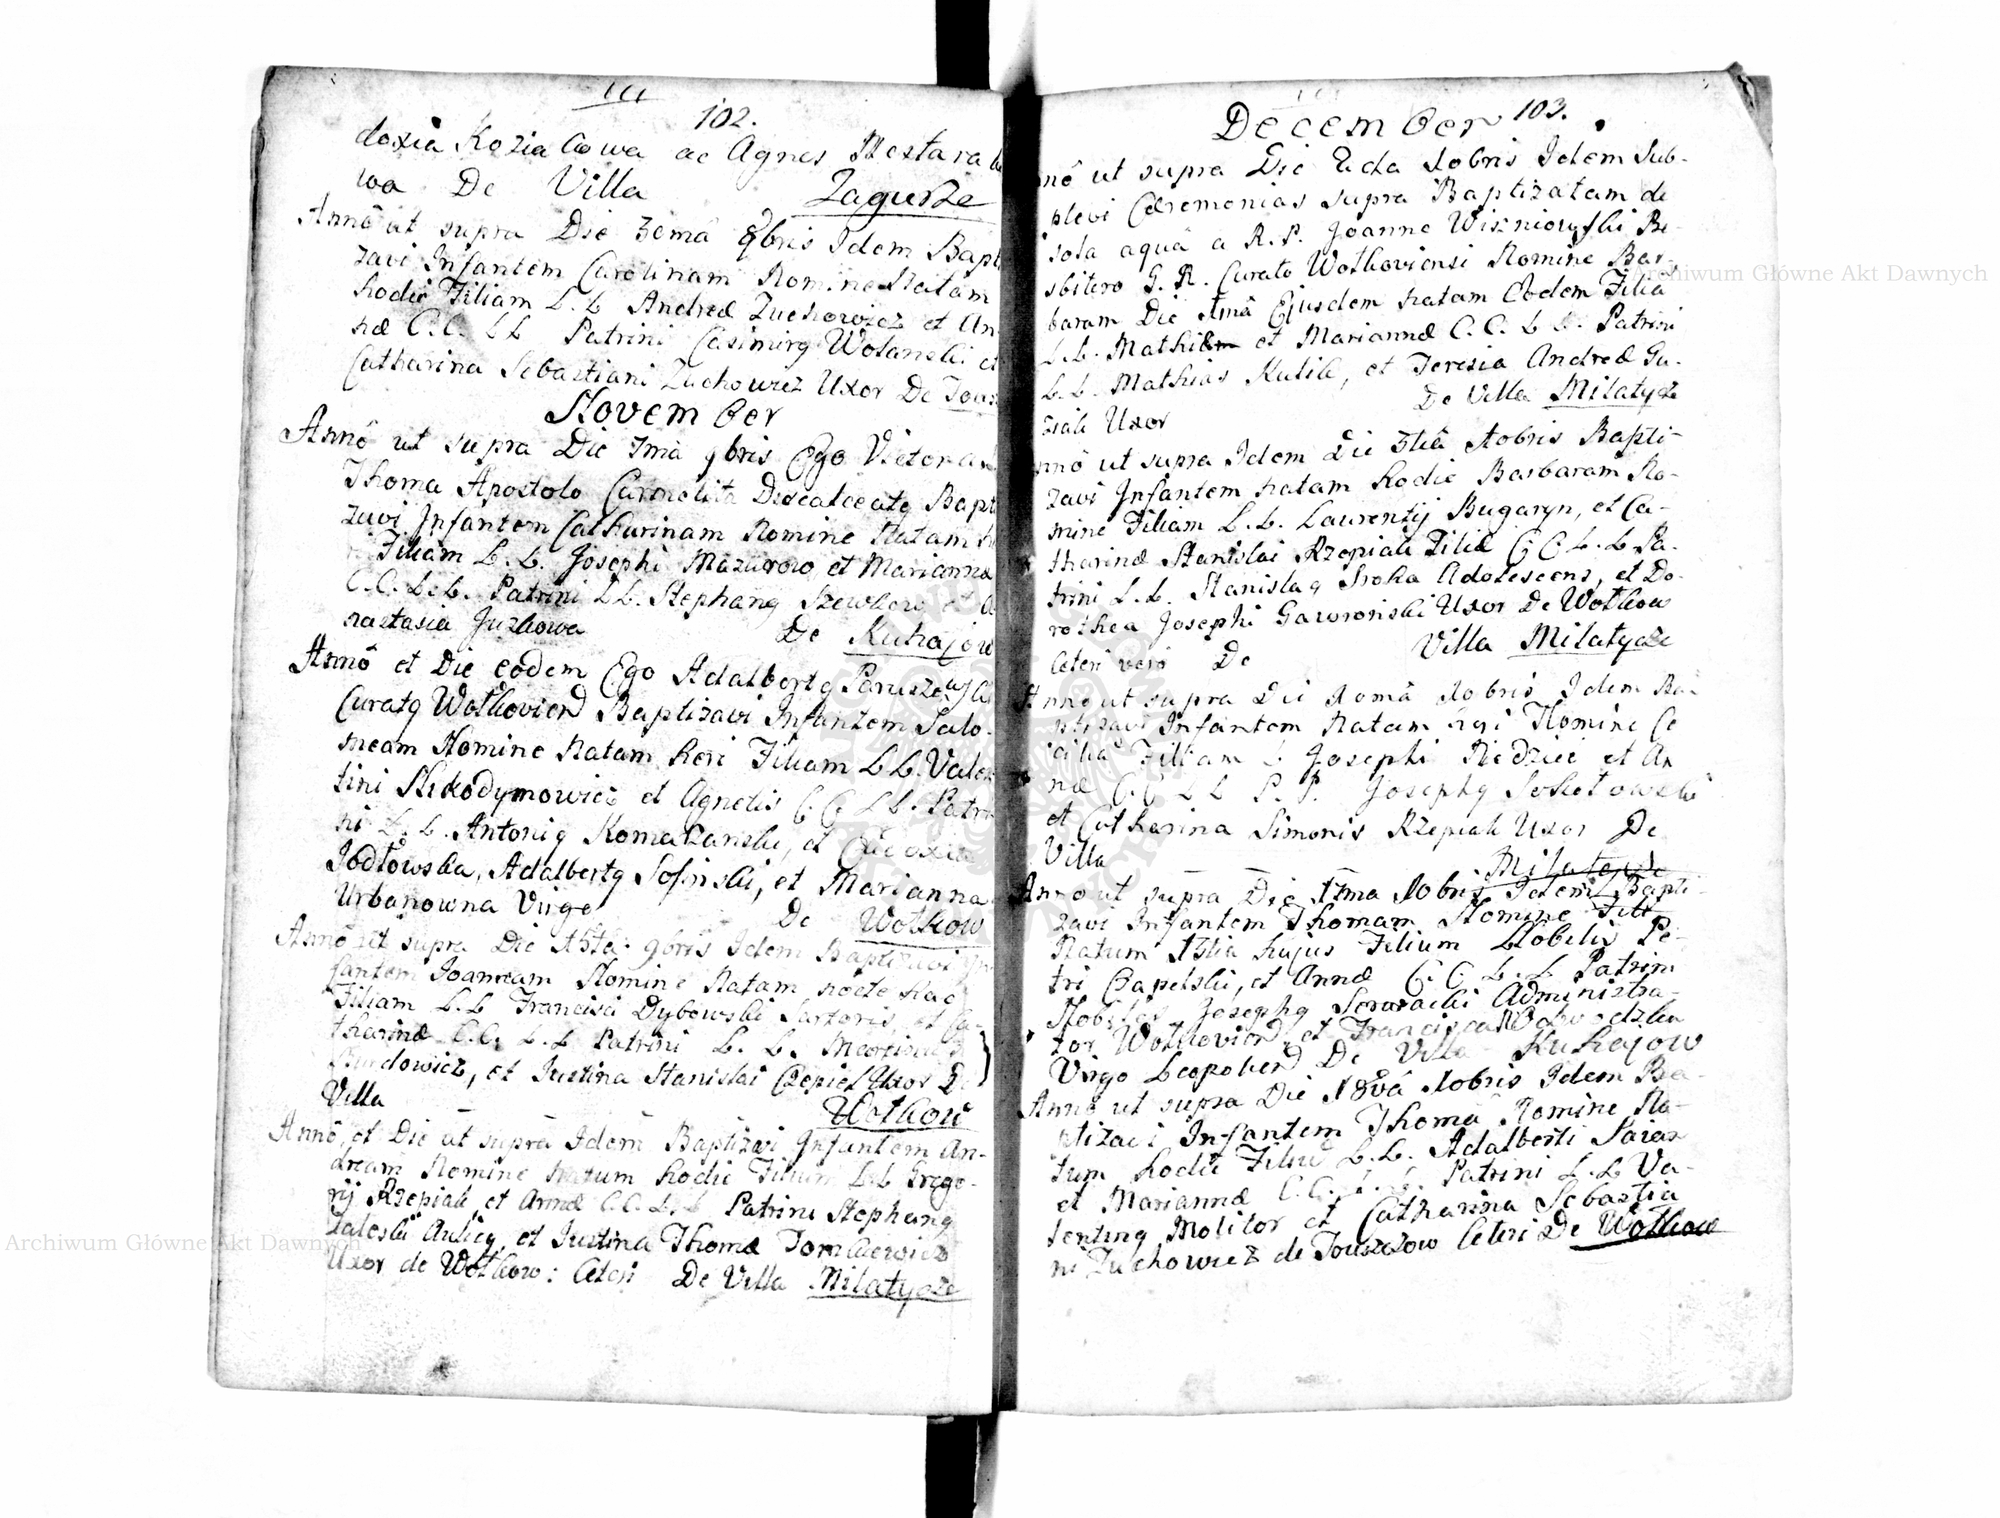 102.
doxia Koziačowa ac Agnes Nestara
wa De Villa Zagurze
Annô ut supra Die 30ma 8bris Idem Bapt
zavi Infantem Carolinam Nomine Natam
hodie Filiam L.L. Andreæ Zuchowicz et An-
næ C.C. L L Patrini Casimirg Wolanski et
Catharina Sebastiani Zuchowicz Uxor De
November
Annô ut supra Die 1mâ 9bris Ego Victor a
Thoma Apostolo Carmelita Discalceatg Bapt
zavi Infantem Catharinam Nomine Natam
Filiam L.L. Josephi Mazurow et Mariannæ
C.C. L.L. Patrini L.L. Stephang Szewkow et A
nastasia Juzkowa De Kuhajow
Annô et Die eodem Ego Adalbertg
Curatg Wołkovien Baptizavi Infantem Salo-
meam Nomine Natam heri Filiam L L. Valen
tini Nikodymowicz et Agnetis C C L L. Patri
ni L. L. Antonig et
Jodłowska, Adalbertg et Marianna
Urbanowna Virgo De Wołkow
Annô ut supra Die 15ta 9bris Idem Baptizavi In
fantem Joannam Nomine Natam nocte hac
Filiam L.L Francisci Dybowski Sartoris et Ca-
tharinæ C.C. L.L Patrini L. L.
et Justina Stanislai Czepiel Uxor De
Villa Wołkow
Annô, et Die ut supra Idem Baptizavi Infantem An-
dream Nomine natum hodie Filium L.L Grego-
rij Rzepiak et Annæ C.C. L.L Patrini Stephang
Zaleski Aulicg et Justina Thomæ Tomkiewicz
Uxor de Wołkow: Ceteri De Villa Milatycze
December 103.
nnô ut supra Die 2da Xobris Idem Sub-
plevi Cæremonias supra Baptizatam de
sola aquâ a R.P. Joanne Wiszniowski Pre-
sbitero G.R. Curato Wołkoviensi Nomine Bar-
baram Die 1mâ Ejusdem natam Eodem Filia
L.L. Mathiæ et Mariannæ C.C. L L. Patrini
L.L. Mathias Kulik, et Teresia Andreæ Gu-
ziak Uxor De Villa Milatycze
nnô ut supra Idem Die 3tiâ Xobris Bapti-
zavi Infantem natam hodie Barbaram No-
mine Filiam L.L. Laurentij Bugaryn, et Ca-
tharinæ Stanislai Rzepiak Filiæ C C L.L Pa-
trini L.L. Stanislag Sroka Adolescens, et Do-
rothea Josephi Gawroński Uxor De Wołkow
Ceteri verò De Villa Milatycze
Anno ut supra Die Xobris Idem Ba-
ptizavi Infantem Natam heri Nomine Ce
ciliâ Filiam L Josephi Niedziel et An
næ C C L L P.P. Josephg Sokołowski
et Catharina Simonis Rzepiak Uxor De
Villa Milatycze
Anno ut supra Die 17ma Xobris Idem Bapti-
zavi Infantem Thomam Nomine
Natum 13tia hujus Filium Nobilis Pe-
tri Czapelski, et Annæ C.C. L.L. Patrini
Nobiles Josephg Administra-
tor Wołkovien et Francisca
Virgo Leopolien De Villa Kuhajow
Annô ut supra Die 18vâ Xobris Idem Ba-
ptizavi Infantem Thomâ Nomine Na-
tum hodie Filiû L.L. Adalberti
et Mariannæ C.C. L.L. Patrini L.L Va-
lenting Molitor et Catharina Sebastia
ni Zuchowicz de Touszczow Ceteri De Wołkow
Archiwum Główne Akt Dawnych
Archiwum Główne Akt Dawnych